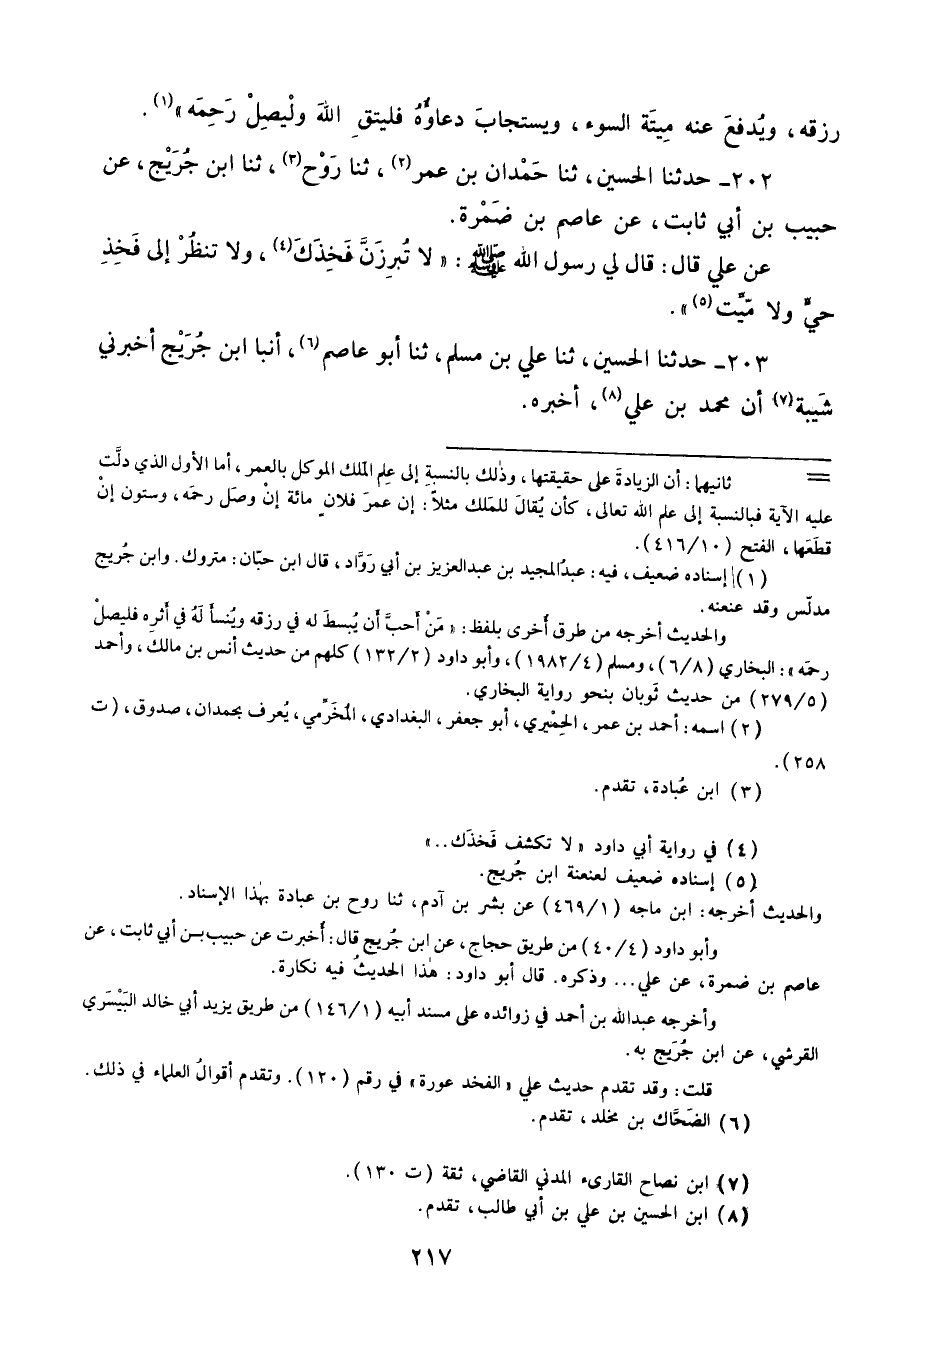 رزقه، ويُدفعَ عنه مِيتَة السوء، ويستجابَ دعاؤهُ فليتقِ اللهَ ولْيصِلْ رَحِمَه»(١).
٢٠٢ـ حدثنا الحسين، ثنا حَمْدان بن عمر(٢)، ثنا رَوْح(٣)، ثنا ابن جُرَيْج، عن
حبيب بن أبي ثابت، عن عاصم بن ضَمْرة.
عن علي قال: قال لي رسول الله ﷺ: «لا تُبرِزَنَّ فَخِذَكَ(٤)، ولا تنظُرْ إلى فَخِذِ
حيٍّ ولا ميِّت(٥)».
٢٠٣ـ حدثنا الحسين، ثنا علي بن مسلم، ثنا أبو عاصم(٦)، أنبا ابن جُرَيْج أخبرني
شَيبة(٧) أن محمد بن علي(٨)، أخبره.
= ثانيهما: أن الزيادةَ على حقيقتها، وذلك بالنسبةِ إلى عِلم الملك الموكل بالعمر، أما الأول الذي دلَّت
عليه الآية فبالنسبة إلى علم الله تعالى، كأن يُقالَ للمَلك مثلاً: إن عمرَ فلانٍ مائة إنْ وصَل رحمَه، وستون إنْ
قطَعَها، الفتح (٤١٦/١٠).
(١) إسناده ضعيف، فيه: عبدُالمجيد بن عبدالعزيز بن أبي رَوَّاد، قال ابن حبّان: متروك. وابن جُريج
مدلّس وقد عنعنه.
والحديث أخرجه من طرق أخرى بلفظ: «مَنْ أحبَّ أن يُبسطَ له في رزقه ويُنسأ لَهُ في أثرِه فليصلْ
رحمَه»: البخاري (٦/٨)، ومسلم (١٩٨٢/٤)، وأبو داود (١٣٢/٢) كلهم من حديث أنس بن مالك، وأحمد
(٢٧٩/٥) من حديث ثَوبان بنحو رواية البخاري.
(٢) اسمه: أحمد بن عمر، الحِمْيري، أبو جعفر، البغدادي، المُخَرِّمي، يُعرف بحمدان، صدوق، (ت
٢٥٨).
(٣) ابن عُبادة، تقدم.
(٤) في رواية أبي داود «لا تكشف فَخذَك..»
(٥) إسناده ضعيف لعنعنة ابن جُريج.
والحديث أخرجه: ابن ماجه (٤٦٩/١) عن بشر بن آدم، ثنا روح بن عبادة بهٰذا الإسناد.
وأبو داود (٤٠/٤) من طريق حجاج، عن ابن جُريج قال: أُخبرت عن حبيب بن أبي ثابت، عن
عاصم بن ضمرة، عن علي... وذكره. قال أبو داود: هٰذا الحديثُ فيه نكارة.
وأخرجه عبدالله بن أحمد في زوائده على مسند أبيه (١٤٦/١) من طريق يزيد أبي خالد البَيْسَري
القرشي، عن ابن جُرَيج به.
قلت: وقد تقدم حديث علي «الفخد عورة» في رقم (١٢٠). وتقدم أقوالُ العلماء في ذلك.
(٦) الضَحَّاك بن مخلد، تقدم.
(٧) ابن نصاح القارىء المدني القاضي، ثقة (ت ١٣٠).
(٨) ابن الحسين بن علي بن أبي طالب، تقدم.
٢١٧